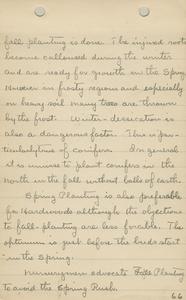 fall planting is done. The injured roots
become calloused during the winter
and are ready for growth in the Spring
However in frosty regions and especially
on heavy soil many trees are thrown
by the frost. Winter-dessication is
also a dangerous factor. This is par-
ticularly true of conifers. In general
it is unwise to plant conifers in the
north in the fall without balls of earth.
Spring Planting is also preferable
for Hardwoods although the objections
to fall-planting are less forcable. The
optimum is just before the buds start
in the Spring.
Nurserymen advocate Fall Planting
to avoid the Spring Rush.
66